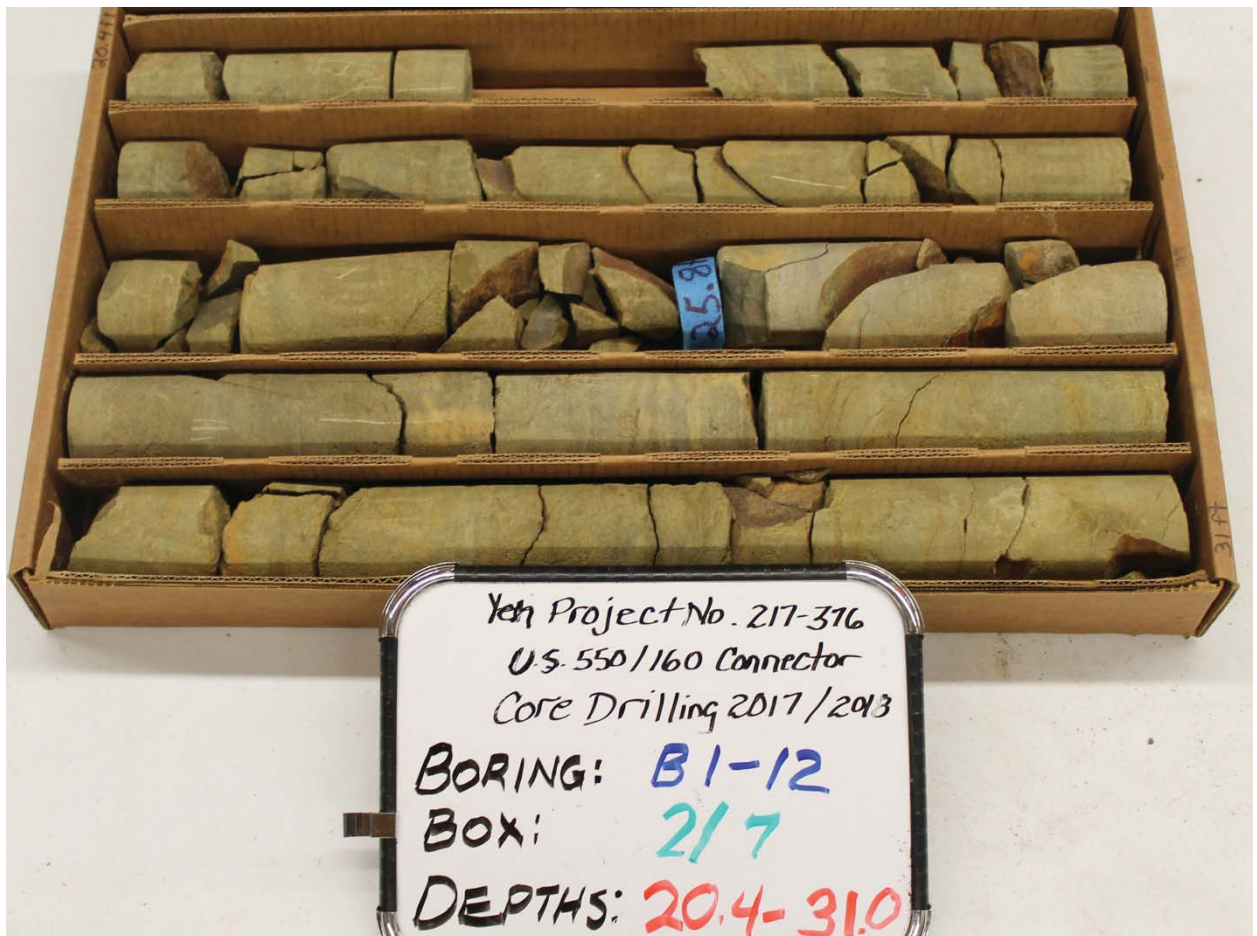 20.4 ft
25.8
31 ft
Yeh Project No. 217-376
U.S. 550/160 Connector
Core Drilling 2017/2018
BORING: B1-12
BOX: 2/7
DEPTHS: 20.4-31.0